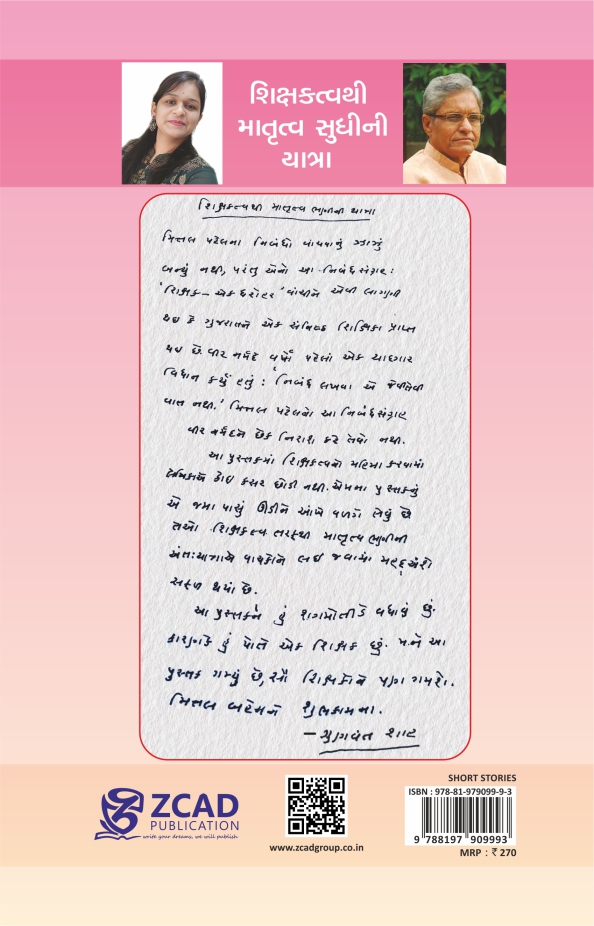 શિક્ષકત્વથી
માતૃત્વ સુધીની
યાત્રા
શિક્ષકત્વથી માતૃત્વ ભણીની યાત્રા
મિત્તલ પટેલના નિબંધો વાંચવાનું ઝાઝું
બન્યું નથી, પરંતુ એનો આ નિબંધસંગ્રહ:
'શિક્ષક – એક ધરોહર' વાંચીને એવી લાગણી
થઇ કે ગુજરાતને એક સંનિષ્ઠ શિક્ષિકા પ્રાપ્ત
થઇ છે. વીર નર્મદે વર્ષો પહેલાં એક યાદગાર
વિધાન કર્યું હતું : 'નિબંધ લખવા એ જેવીતેવી
વાત નથી.' મિત્તલ પટેલનો આ નિબંધસંગ્રહ
વીર નર્મદને છેક નિરાશ કરે તેવો નથી.
આ પુસ્તકમાં શિક્ષકત્વનો મહિમા કરવામાં
લેખિકાએ કોઇ કસર છોડી નથી. એમના પુસ્તકનું
એ જમા પાસું ઊડીને આંખે વળગે તેવું છે
તેઓ શિક્ષકત્વ તરફથી માતૃત્વ ભણીની
અંતઃયાત્રાએ વાચકોને લઇ જવામાં મહદ્અંશે
સફળ થયાં છે.
આ પુસ્તકને હું શગમોતીડે વધાવું છું.
કારણકે હું પોતે એક શિક્ષક છું. મને આ
પુસ્તક ગમ્યું છે, સૌ શિક્ષકોને પણ ગમશે.
મિત્તલ બહેનને શુભકામના.
– ગુણવંત શાહ
ZCAD
PUBLICATION
write your dreams, we will publish
www.zcadgroup.co.in
SHORT STORIES
ISBN : 978-81-979099-9-3
9 788197 909993
MRP : ₹ 270